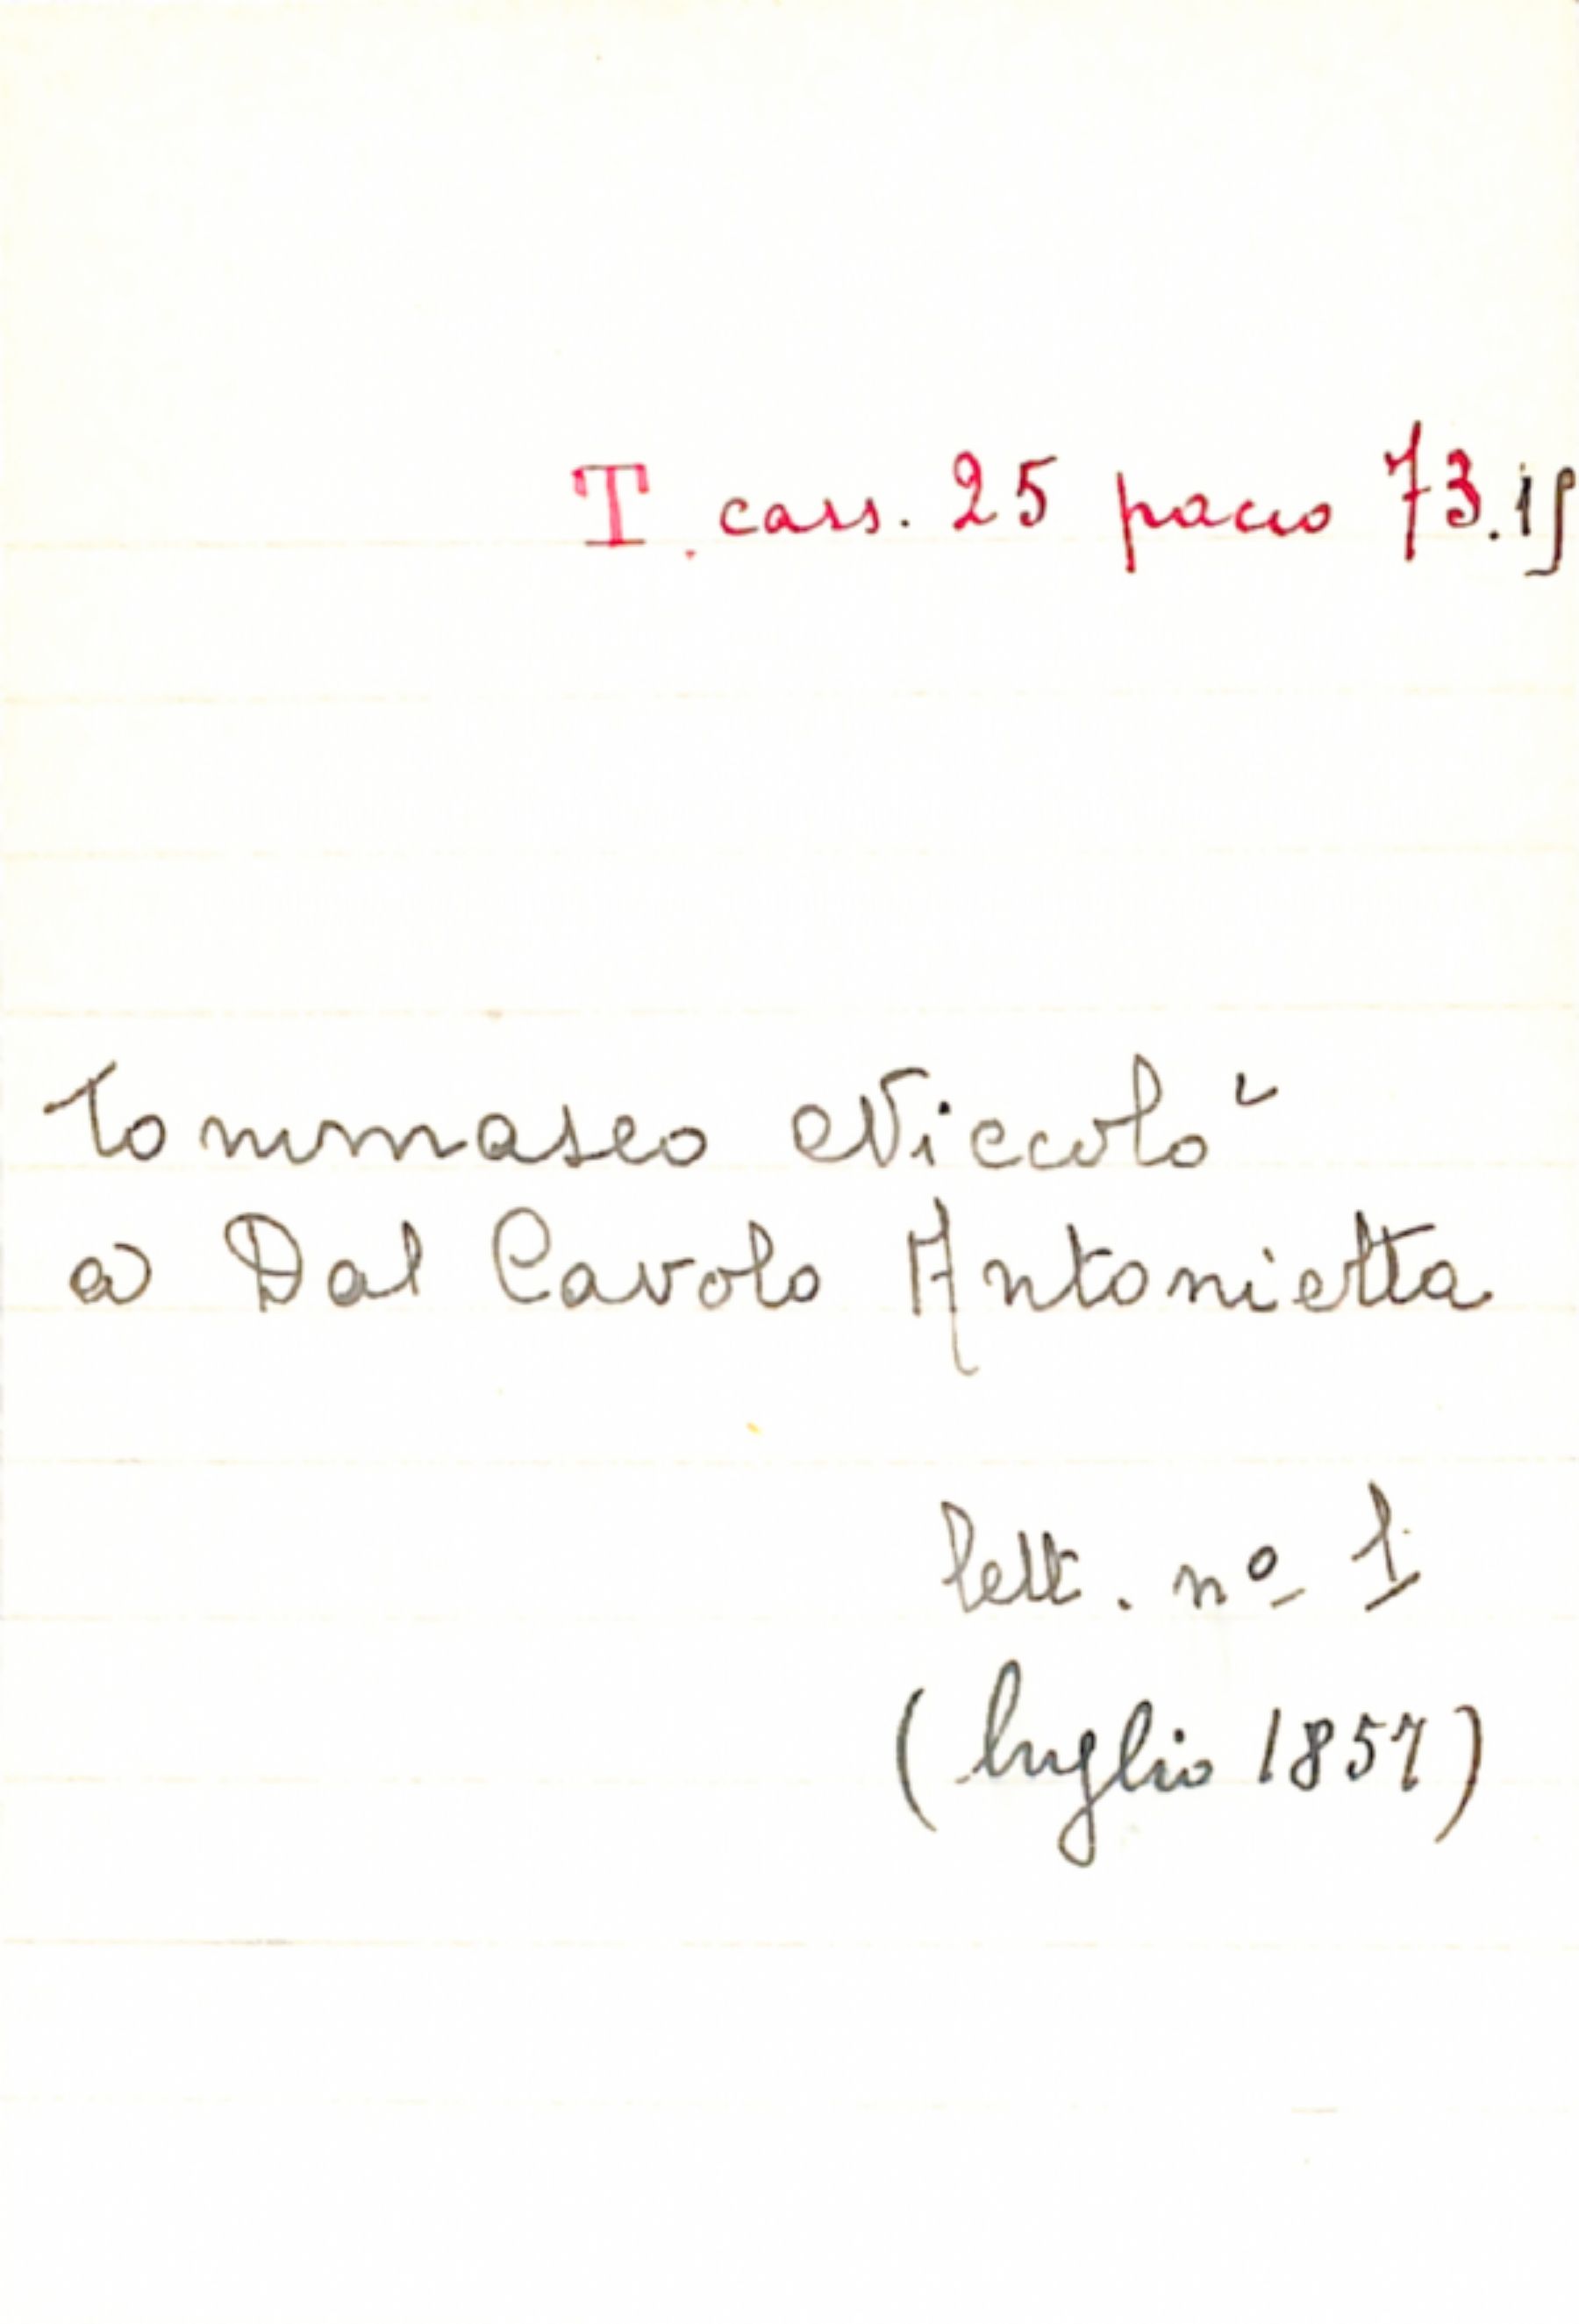 T. cass. 25 pacco 73.15
Tommaseo Niccolò
a Dal Cavolo Antonietta
lett. nº 1
(luglio 1857)